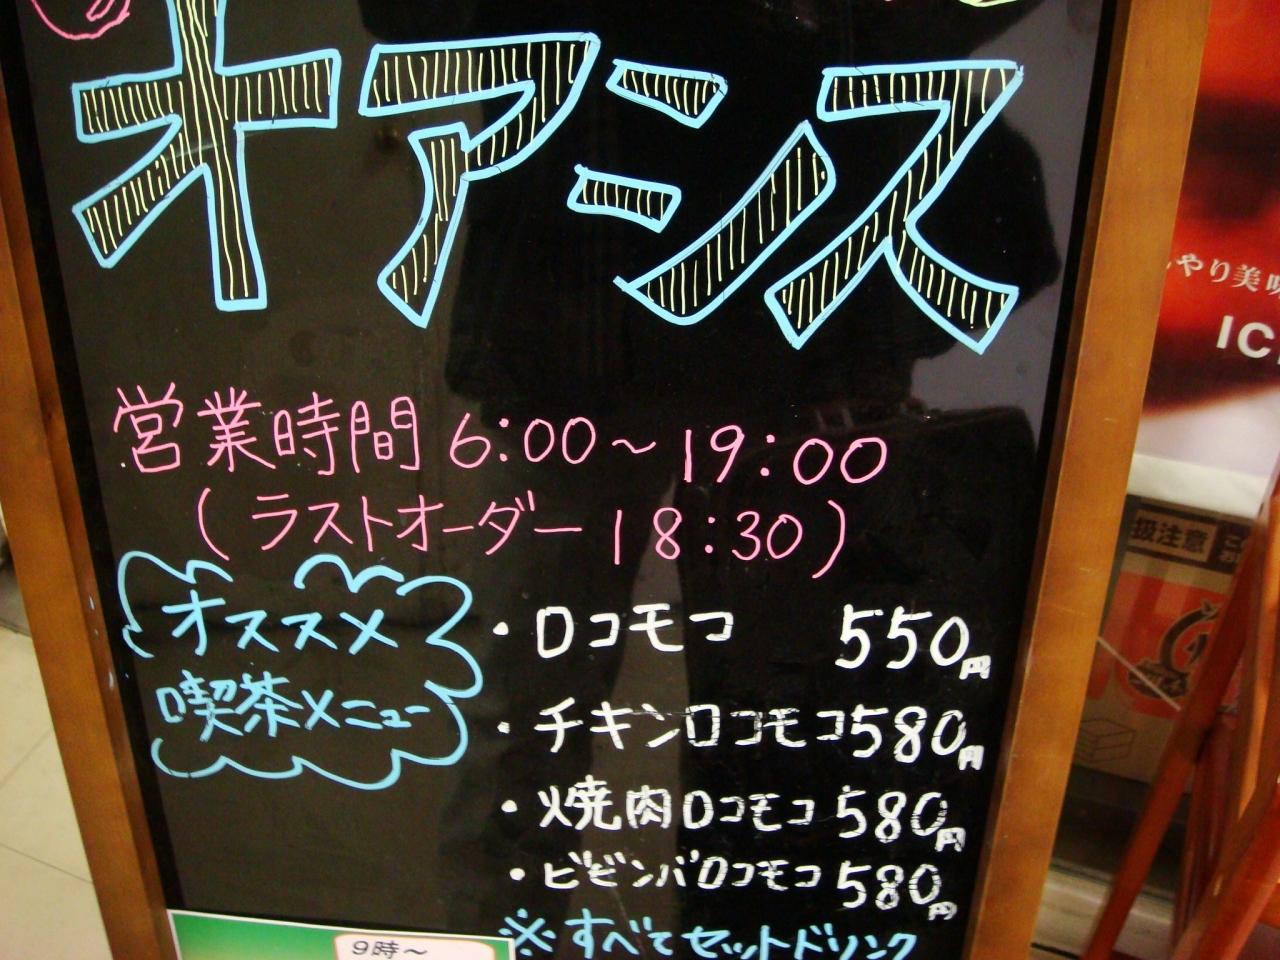 オアシス
営業時間 6:00～19:00
(ラストオーダー 18:30)
オススメ
喫茶メニュー
・ロコモコ 550円
・チキンロコモコ 580円
・焼肉ロコモコ 580円
・ビビンバロコモコ 580円
※すべてセットドリンク
9時～
やり美味
IC
扱注意